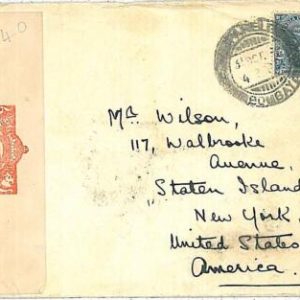 40
BOMBAY
31 OCT.
4
Mr. Wilson,
117, Walbrooke
Avenue,
Staten Island
New York,
United States
America.